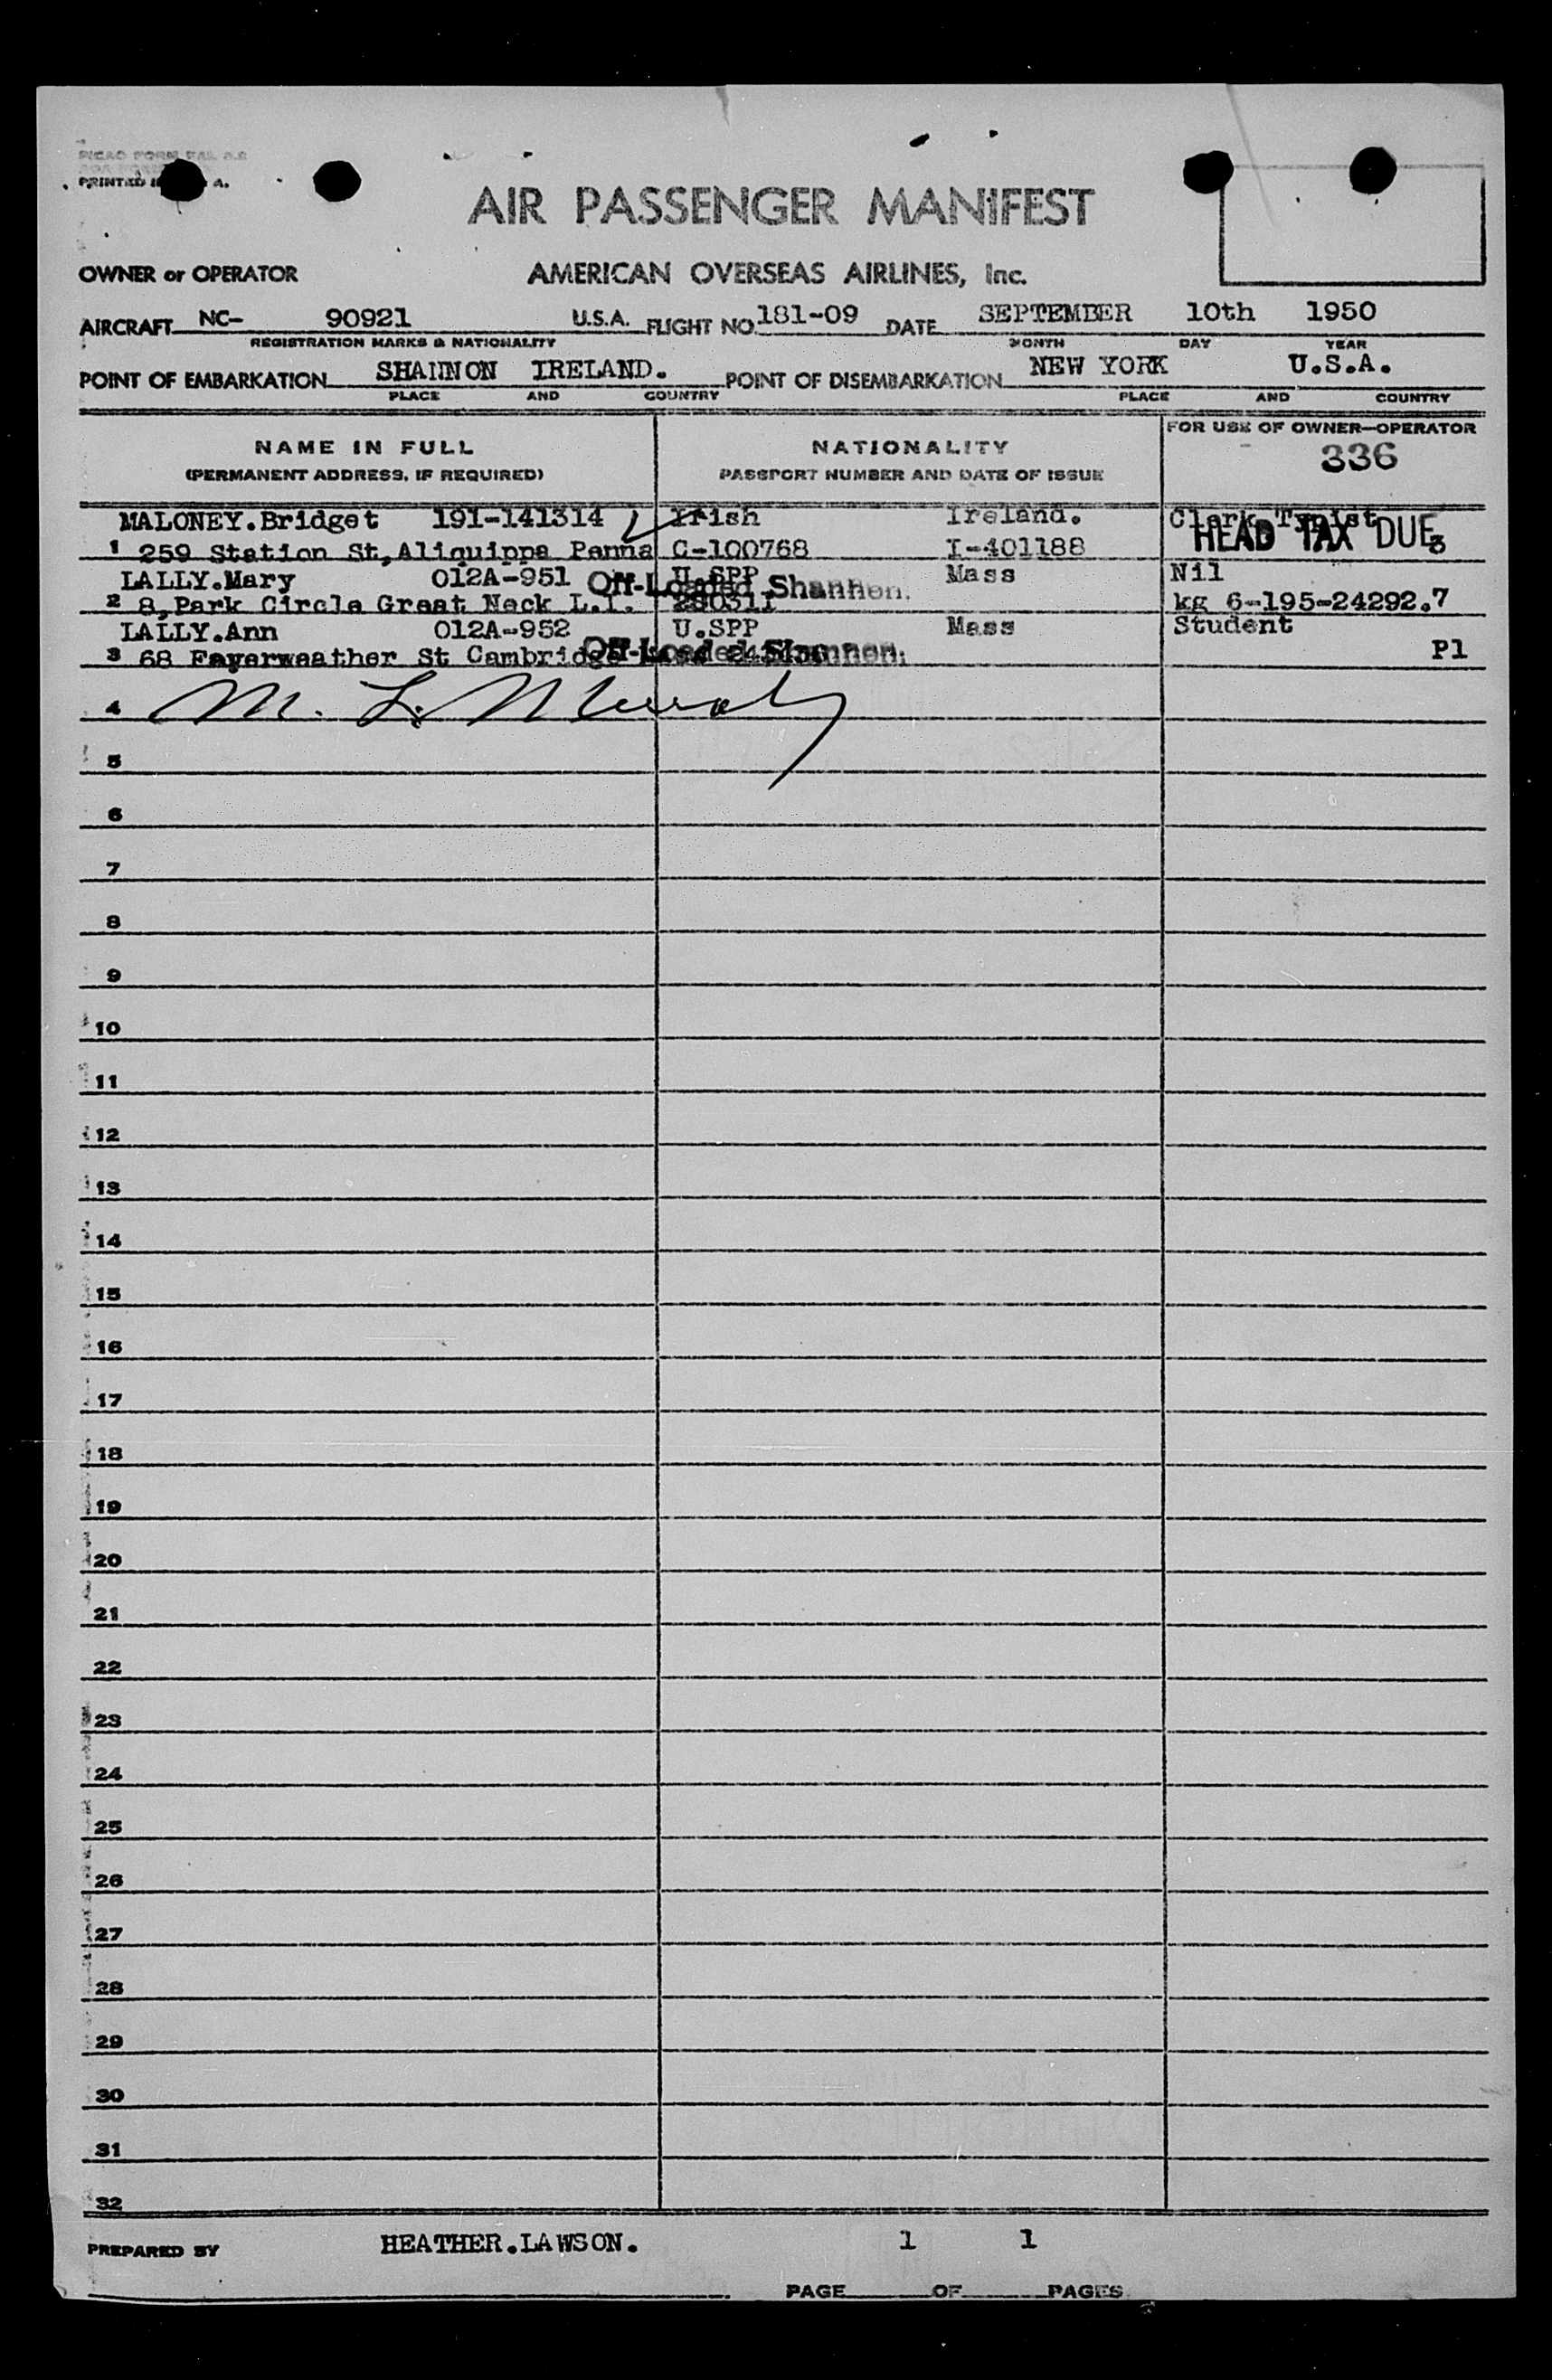 PRINTED IN A.
AIR PASSENGER MANIFEST
OWNER or OPERATOR AMERICAN OVERSEAS AIRLINES, Inc.
AIRCRAFT NC- 90921 U.S.A. FLIGHT NO. 181-09 DATE SEPTEMBER 10th 1950
REGISTRATION MARKS & NATIONALITY MONTH DAY YEAR
POINT OF EMBARKATION SHANNON IRELAND. POINT OF DISEMBARKATION NEW YORK U.S.A.
PLACE AND COUNTRY PLACE AND COUNTRY
NAME IN FULL NATIONALITY FOR USE OF OWNER—OPERATOR
(PERMANENT ADDRESS, IF REQUIRED) PASSPORT NUMBER AND DATE OF ISSUE 336
MALONEY.Bridget 191-141314 Irish Ireland. Clerk Typist
HEAD TAX DUE
1 259 Station St,Aliquippa Penna C-100768 I-401188 3
LALLY.Mary 012A-951 U.SPP Mass Nil
Off-Loaded Shannon.
2 8,Park Circle Great Neck L.I. 280311 kg 6-195-24292.7
LALLY.Ann 012A-952 U.SPP Mass Student
3 68 Fayerweather St Cambridge Pl
Off-Loaded Shannon.
4 M. L.
5
6
7
8
9
10
11
12
13
14
15
16
17
18
19
20
21
22
23
24
25
26
27
28
29
30
31
32
PREPARED BY HEATHER.LAWSON. 1 1
PAGE OF PAGES